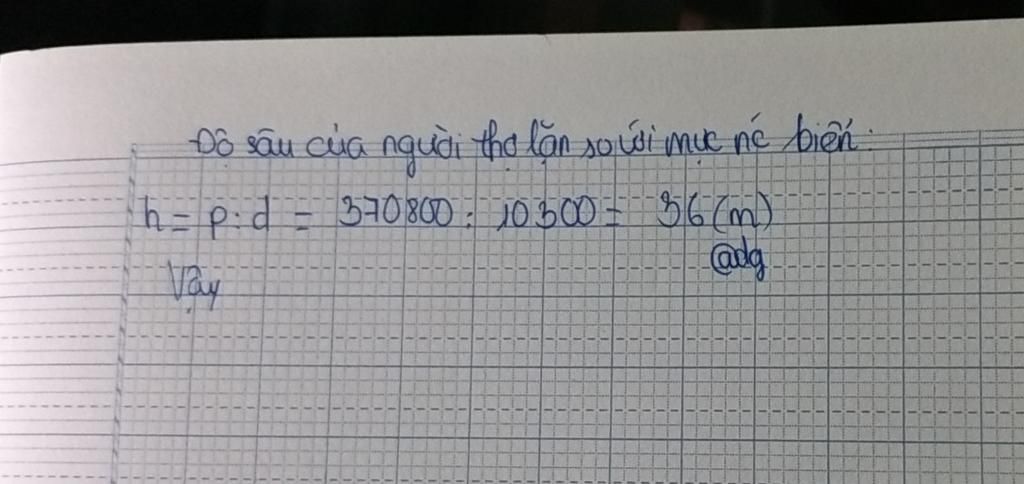 Độ sâu của người thợ lặn so với mực nc biển:
h = p : d = 370800 : 10300 = 36 (m)
@dg
Vậy